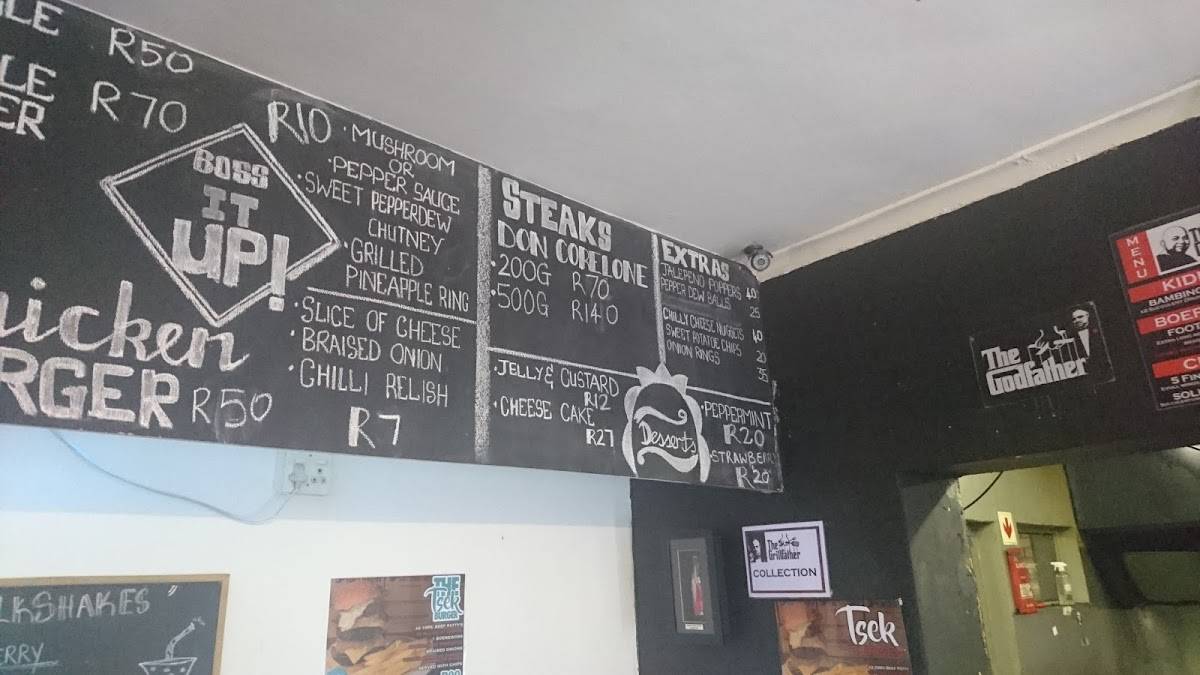 R50
R70
BOSS
IT
UP!
Chicken
BURGER R50
R10
· MUSHROOM
OR
· PEPPER SAUCE
· SWEET PEPPERDEW
CHUTNEY
· GRILLED
PINEAPPLE RING
· SLICE OF CHEESE
BRAISED ONION
· CHILLI RELISH
R7
STEAKS
DON CORELONE
· 200G R70
· 500G R140
EXTRAS
JALEPENO POPPERS 40
PEPPER DEW BALLS 25
CHILLY CHEESE NUGGETS 40
SWEET POTATOE CHIPS 20
ONION RINGS 35
· JELLY & CUSTARD
R12
· CHEESE CAKE
R27
Desserts
· PEPPERMINT
R20
· STRAWBERRY
R20
The
Godfather
MENU
The
Grillfather
COLLECTION
THE
Tsek
BURGER
Tsek